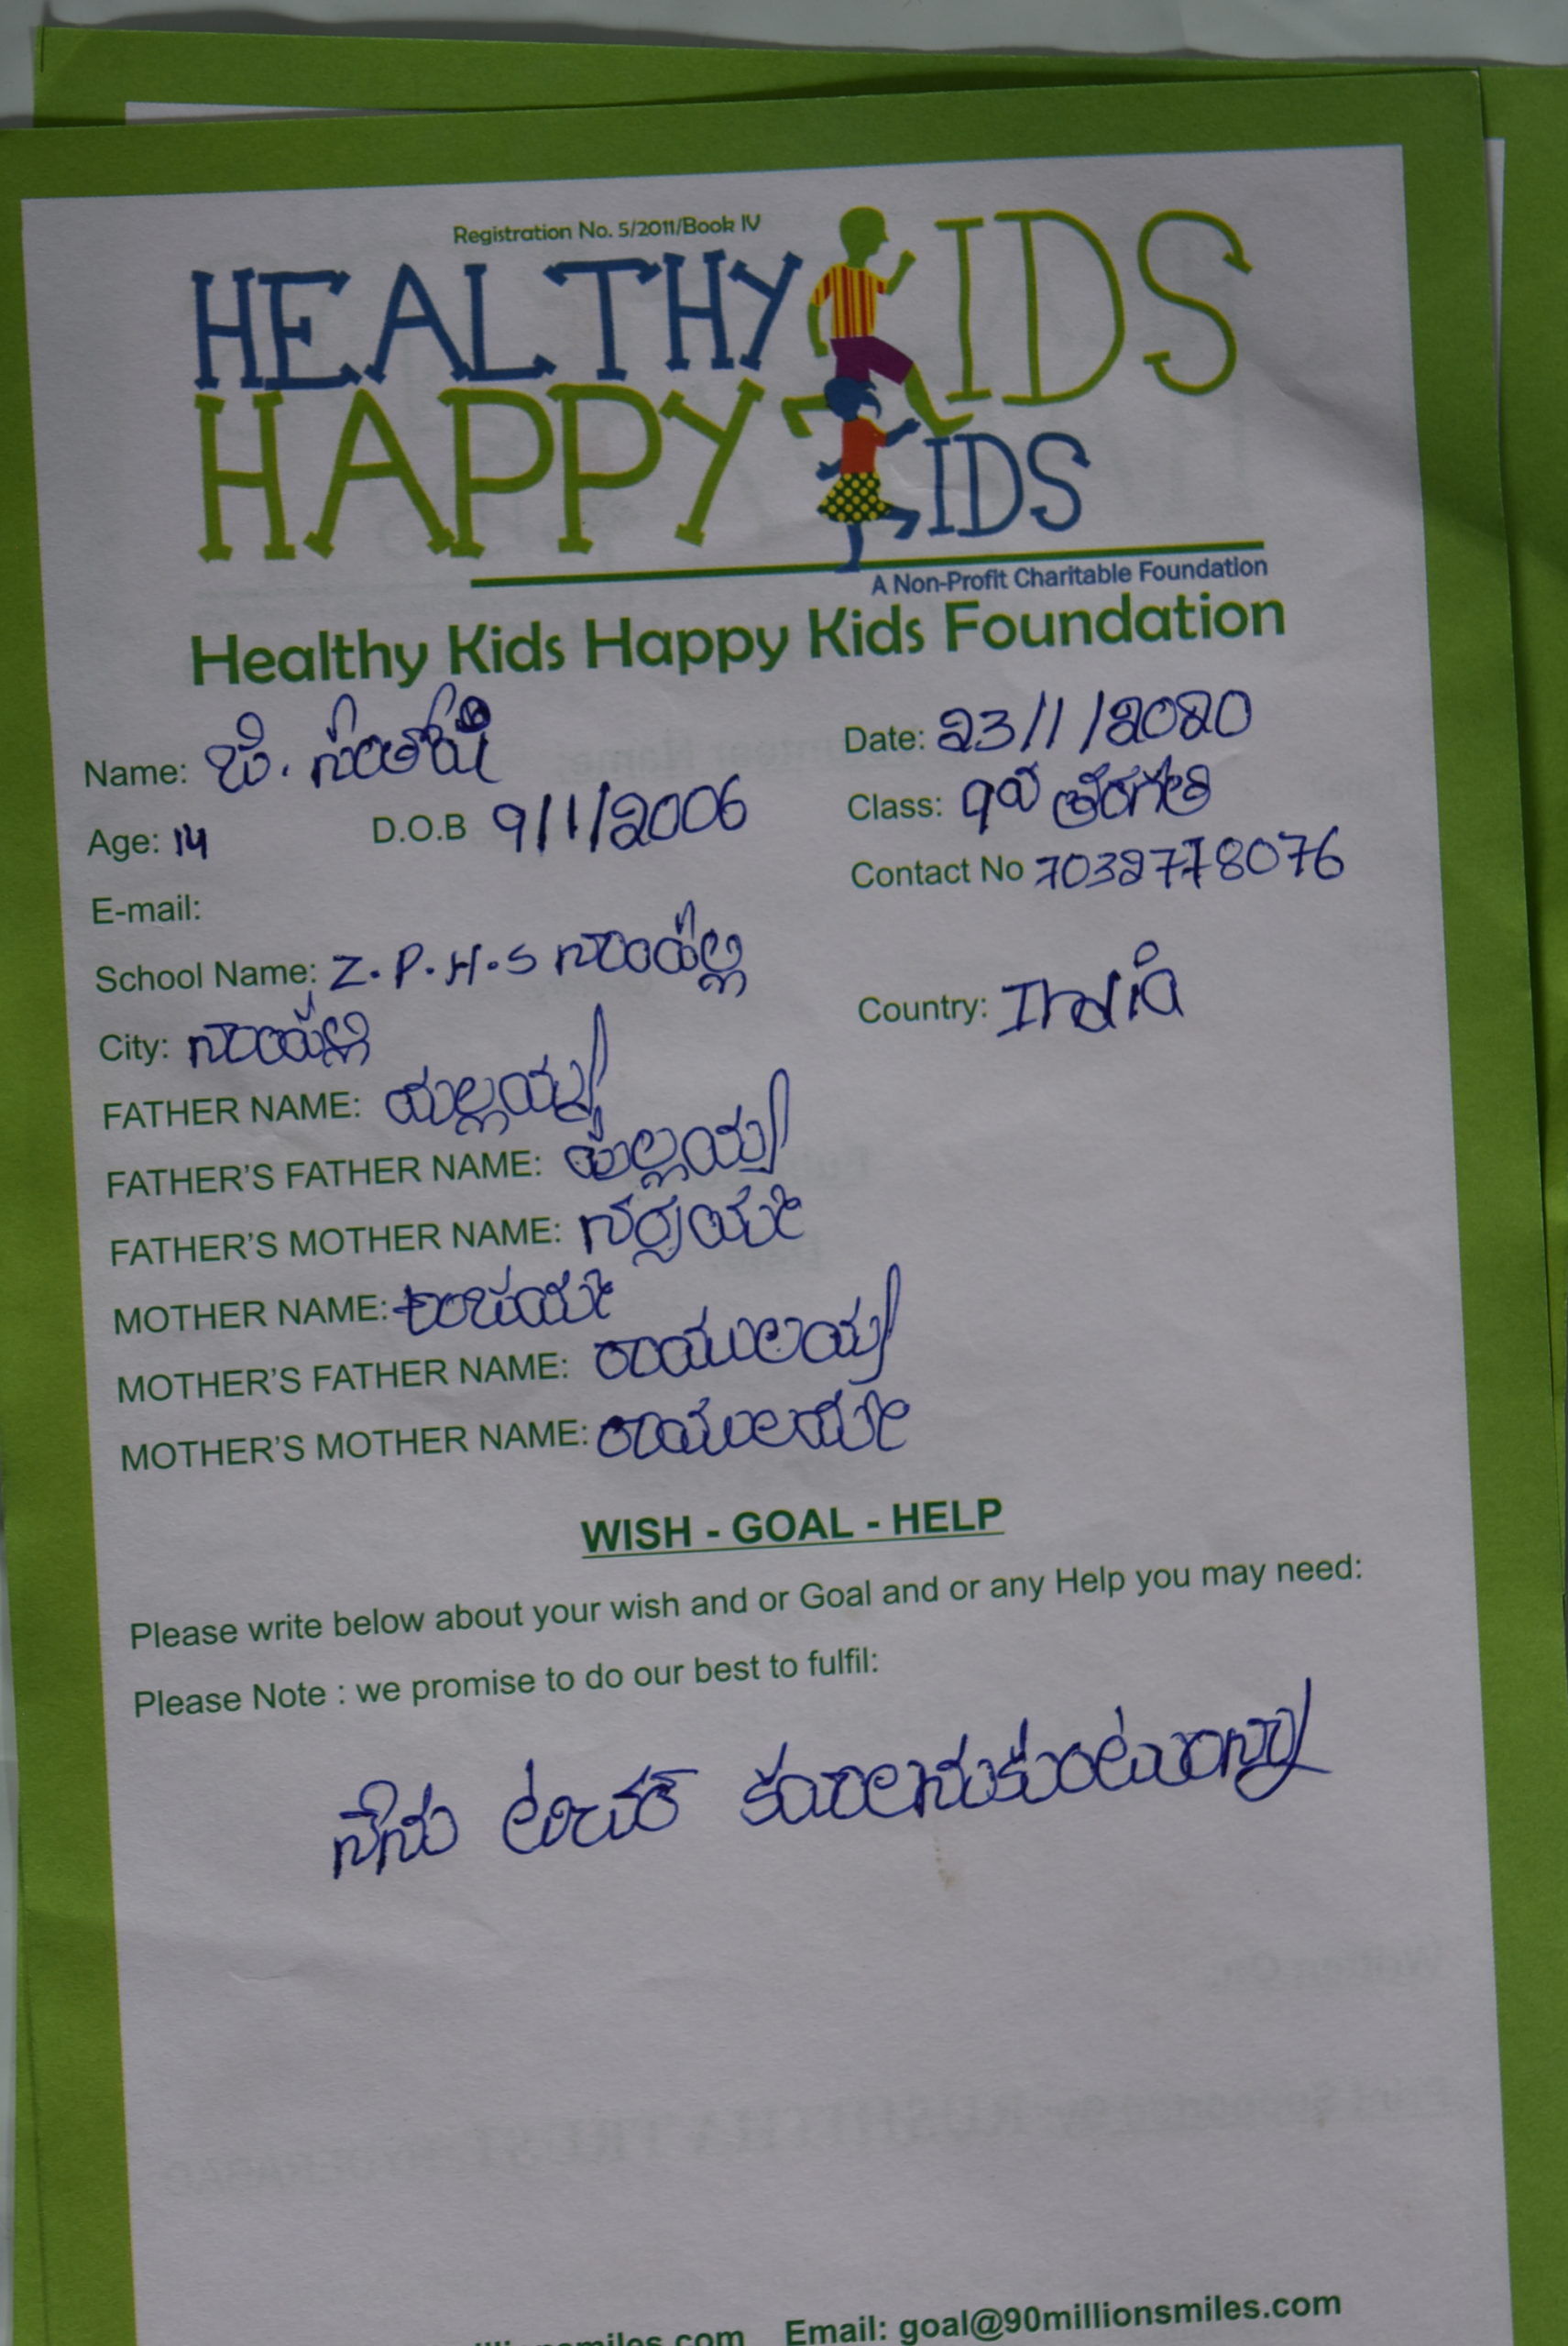 Registration No. 5/2011/Book IV
HEALTHY KIDS
HAPPY KIDS
A Non-Profit Charitable Foundation
Healthy Kids Happy Kids Foundation
Name: జె.
Date: 23/1/2020
Age: 14 D.O.B 9/1/2006
Class: 9వ తరగతి
Contact No 7032778076
E-mail:
School Name: Z.P.H.S
Country: India
City:
FATHER NAME: మల్లయ్య
FATHER'S FATHER NAME:
FATHER'S MOTHER NAME:
MOTHER NAME:
MOTHER'S FATHER NAME: రాములయ్య
MOTHER'S MOTHER NAME: రాములమ్మ
WISH - GOAL - HELP
Please write below about your wish and or Goal and or any Help you may need:
Please Note : we promise to do our best to fulfil:
నేను టీచర్ కావాలనుకుంటున్నా
Email: goal@90millionsmiles.com